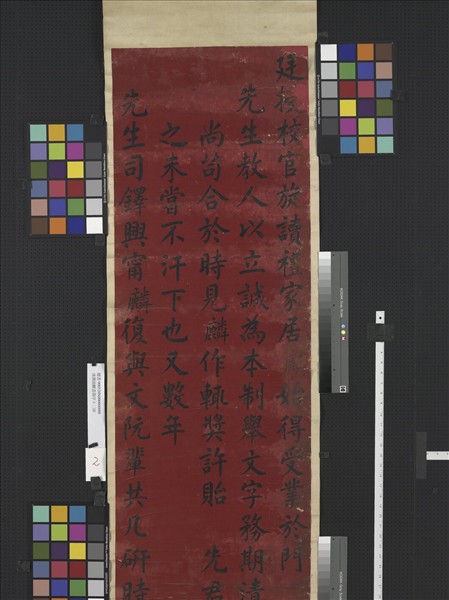 廷授校官旋讀禮家居始得受業於門
先生教人以立誠為本制舉文字務期清
尚苟合於時見麟作輒獎許貽 先君
之未嘗不汗下也又數年
先生司鐸興甯麟復與文阮輩共几硏時